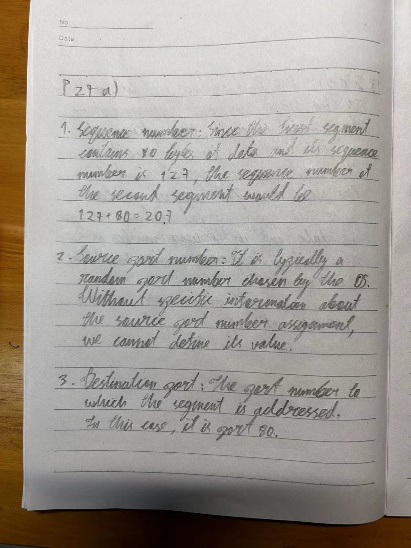 No
Date
P27 a)
1. Sequence number: Since the first segment
contains 80 bytes of data and its sequence
number is 127, the sequence number of
the second segment would be
127 + 80 = 207
2. Source port number: It is typically a
random port number chosen by the OS.
Without specific information about
the source port number assignment,
we cannot define its value.
3. Destination port: The port number to
which the segment is addressed.
In this case, it is port 80.